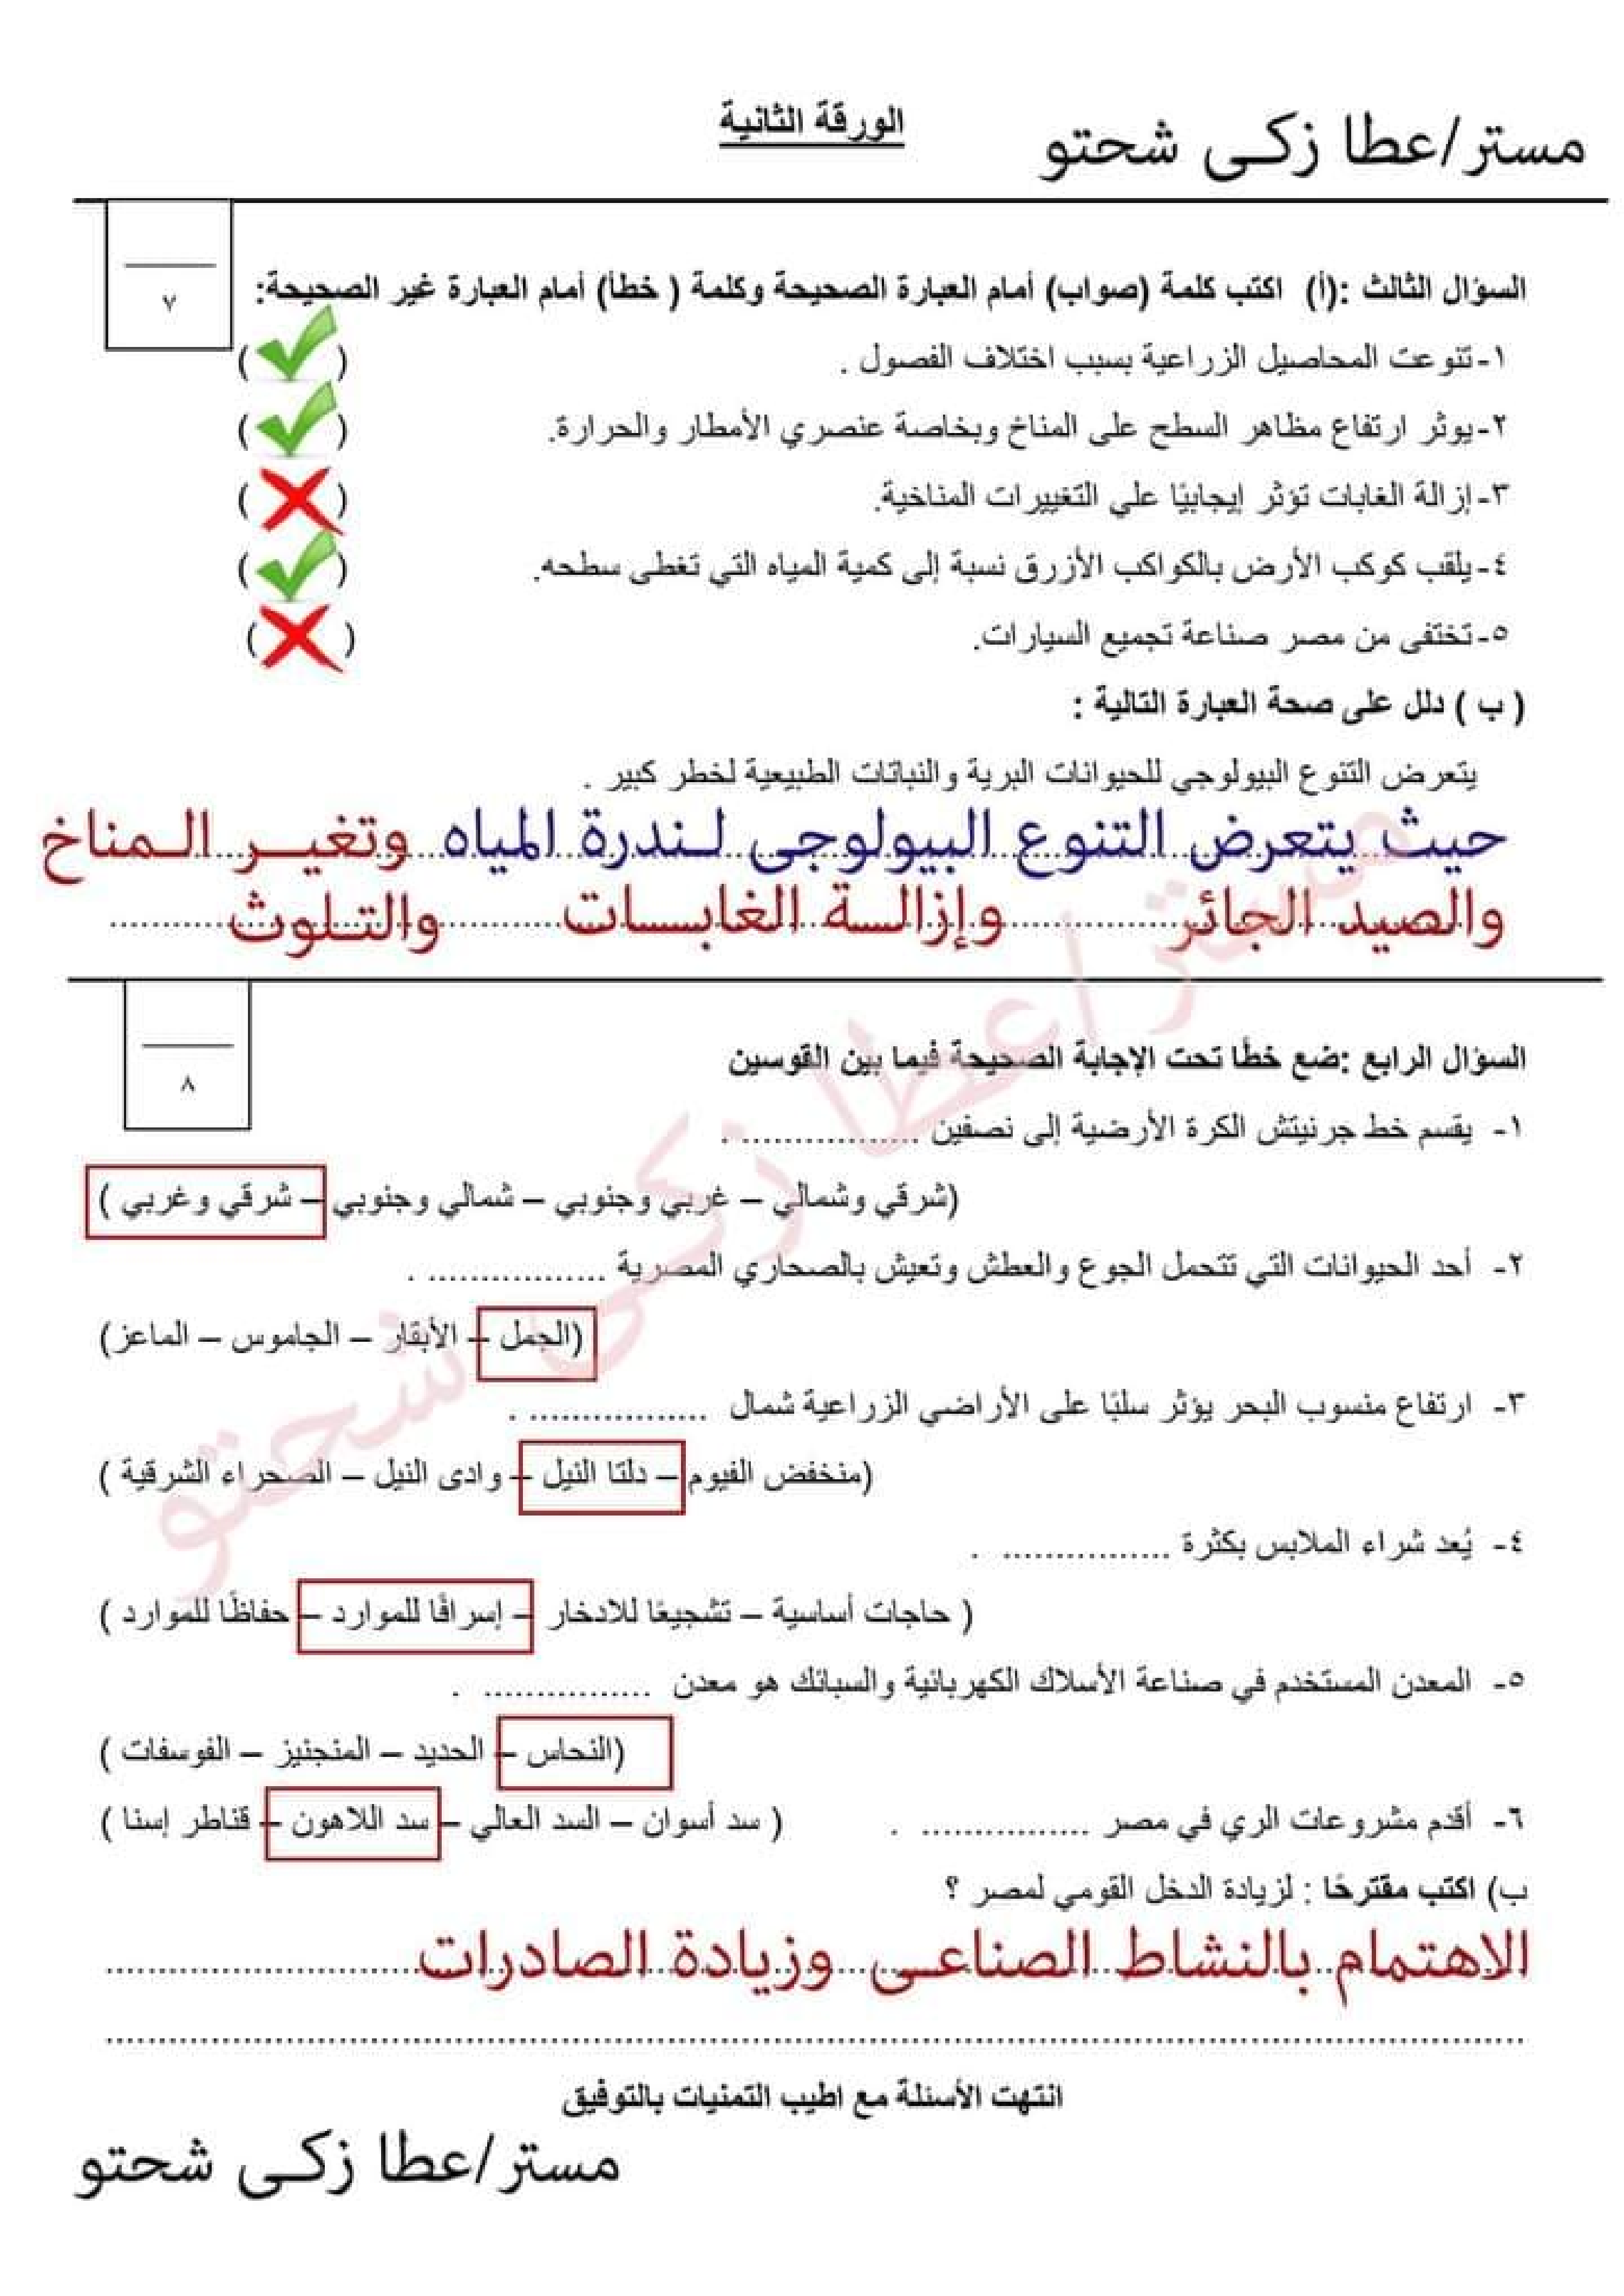 مستر/عطا زكى شحتو
الورقة الثانية
٧
السؤال الثالث :(أ) اكتب كلمة (صواب) أمام العبارة الصحيحة وكلمة ( خطأ) أمام العبارة غير الصحيحة:
١-تنوعت المحاصيل الزراعية بسبب اختلاف الفصول . ( )
٢-يوثر ارتفاع مظاهر السطح على المناخ وبخاصة عنصري الأمطار والحرارة. ( )
٣-إزالة الغابات تؤثر إيجابيًا علي التغييرات المناخية. ( )
٤-يلقب كوكب الأرض بالكواكب الأزرق نسبة إلى كمية المياه التي تغطى سطحه. ( )
٥-تختفى من مصر صناعة تجميع السيارات. ( )
( ب ) دلل على صحة العبارة التالية :
يتعرض التنوع البيولوجي للحيوانات البرية والنباتات الطبيعية لخطر كبير .
حيث يتعرض التنوع البيولوجى لندرة المياه وتغير المناخ
والصيد الجائر وإزالة الغابات والتلوث
٨
السؤال الرابع :ضع خطًا تحت الإجابة الصحيحة فيما بين القوسين
١- يقسم خط جرنيتش الكرة الأرضية إلى نصفين ................. .
(شرقي وشمالي – غربي وجنوبي – شمالي وجنوبي – شرقي وغربي )
٢- أحد الحيوانات التي تتحمل الجوع والعطش وتعيش بالصحاري المصرية ................. .
(الجمل – الأبقار – الجاموس – الماعز)
٣- ارتفاع منسوب البحر يؤثر سلبًا على الأراضي الزراعية شمال ................. .
(منخفض الفيوم – دلتا النيل – وادى النيل – الصحراء الشرقية )
٤- يُعد شراء الملابس بكثرة ................ .
( حاجات أساسية – تشجيعًا للادخار – إسرافًا للموارد – حفاظًا للموارد )
٥- المعدن المستخدم في صناعة الأسلاك الكهربائية والسبائك هو معدن ................ .
(النحاس – الحديد – المنجنيز – الفوسفات )
٦- أقدم مشروعات الري في مصر ................ . ( سد أسوان – السد العالي – سد اللاهون – قناطر إسنا )
ب) اكتب مقترحًا : لزيادة الدخل القومي لمصر ؟
الاهتمام بالنشاط الصناعى وزيادة الصادرات
انتهت الأسئلة مع اطيب التمنيات بالتوفيق
مستر/عطا زكى شحتو
مستر/عطا زكى شحتو